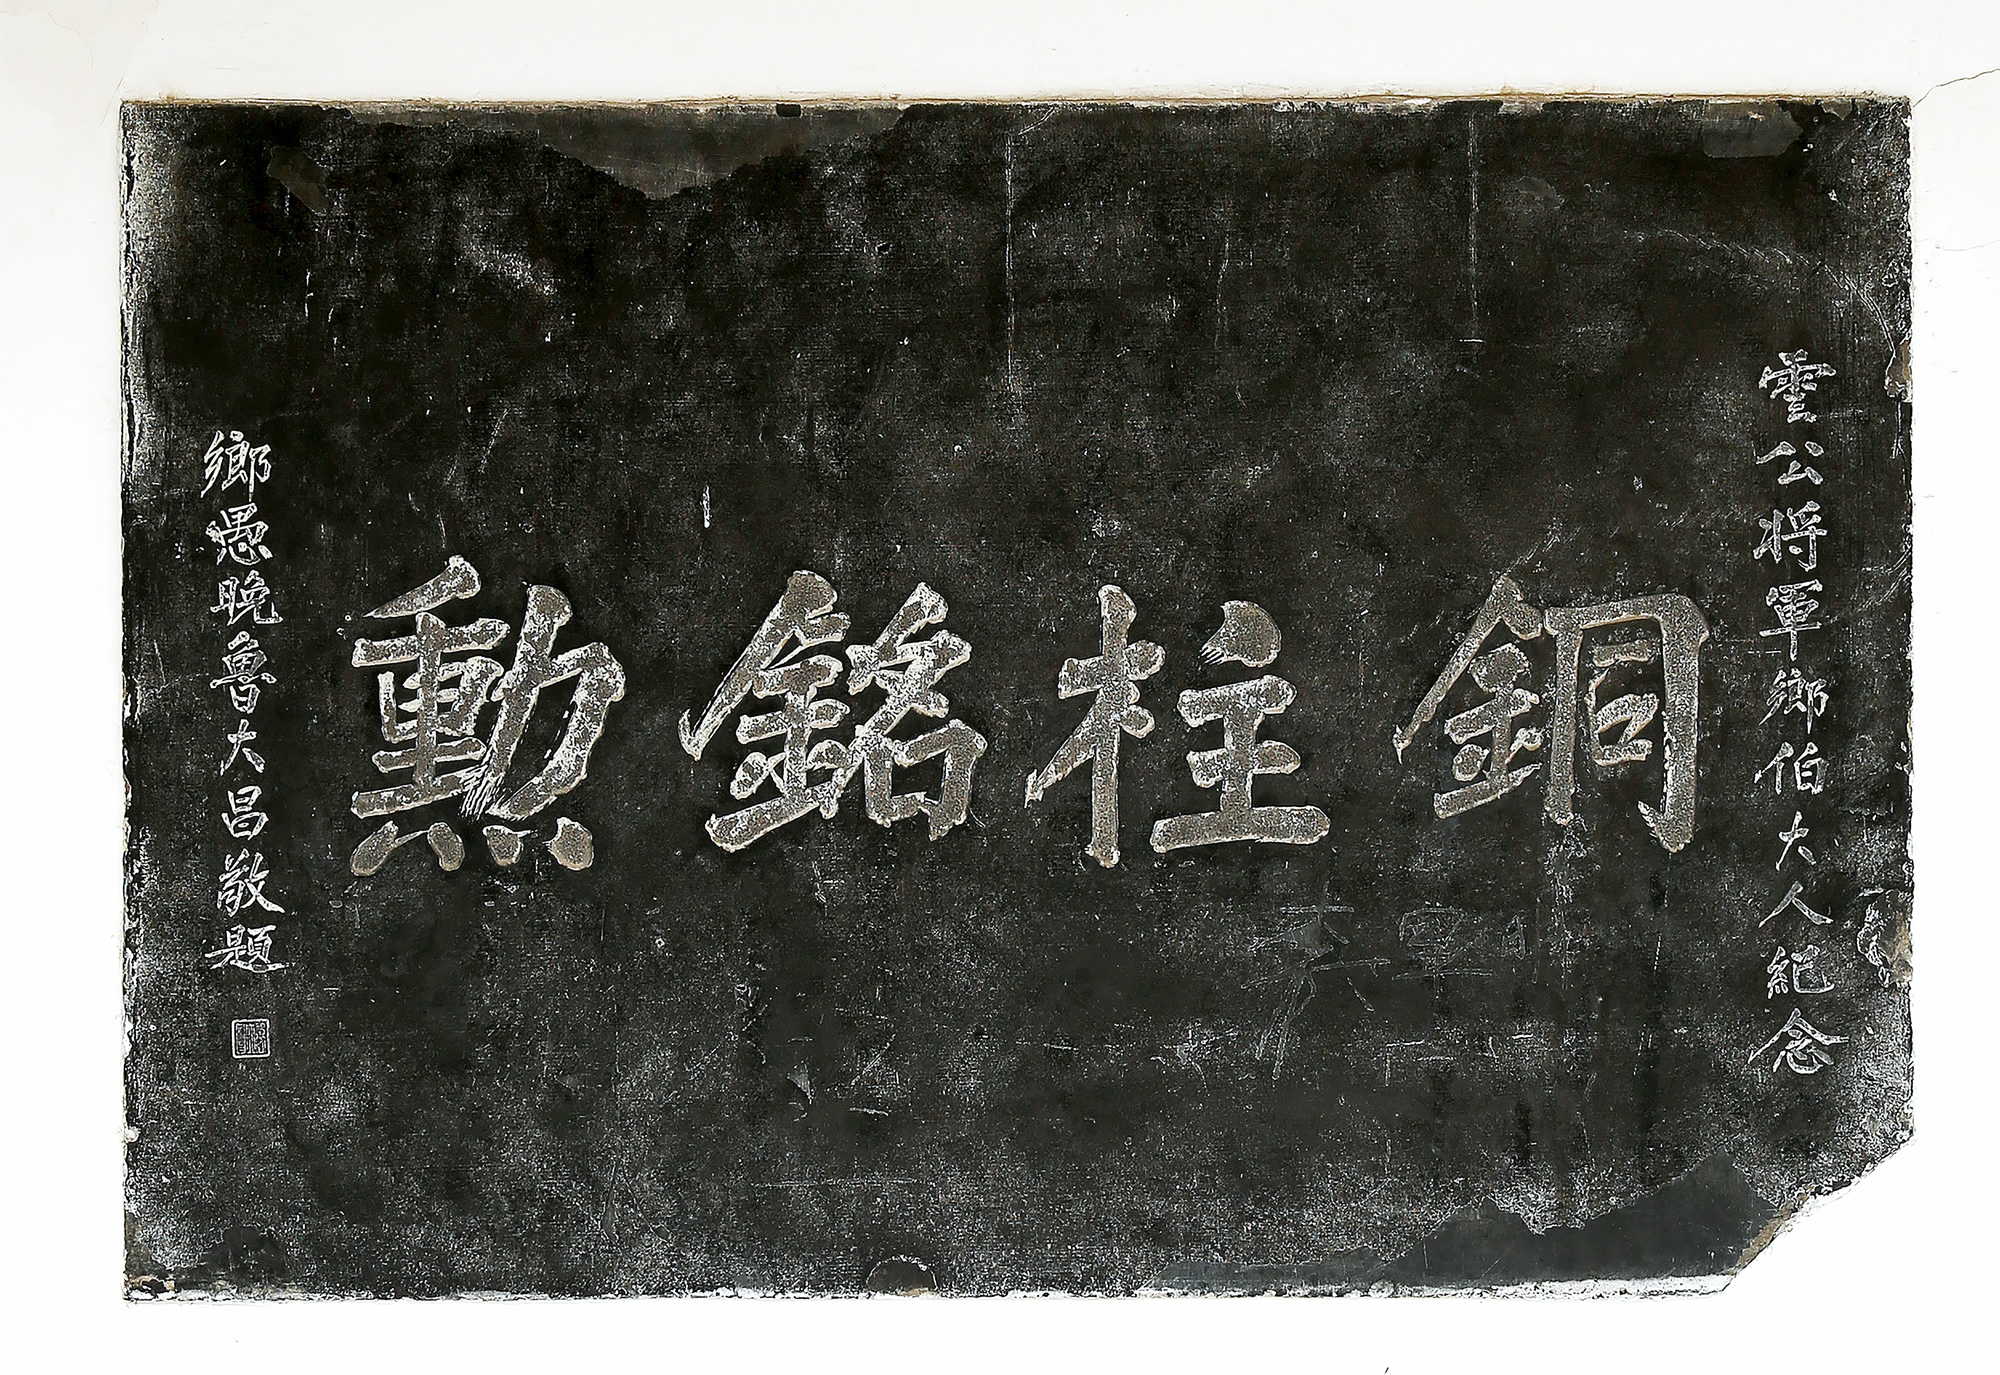 雲公将軍鄉伯大人紀念
銅柱銘勲
鄉愚晚魯大昌敬題